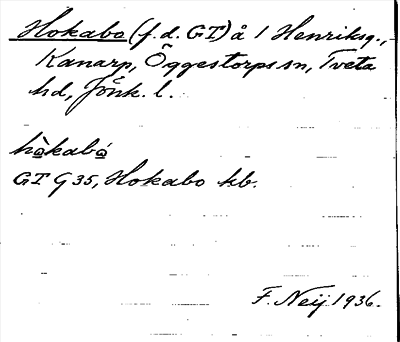 Hokabo (f.d. GT) å 1 Henriksg.,
Kanarp, Öggestorps sn, Tveta
hd, Jönk. l.
hòkabó
GT G 35, Hokabo hb.
F. Neij 1936.